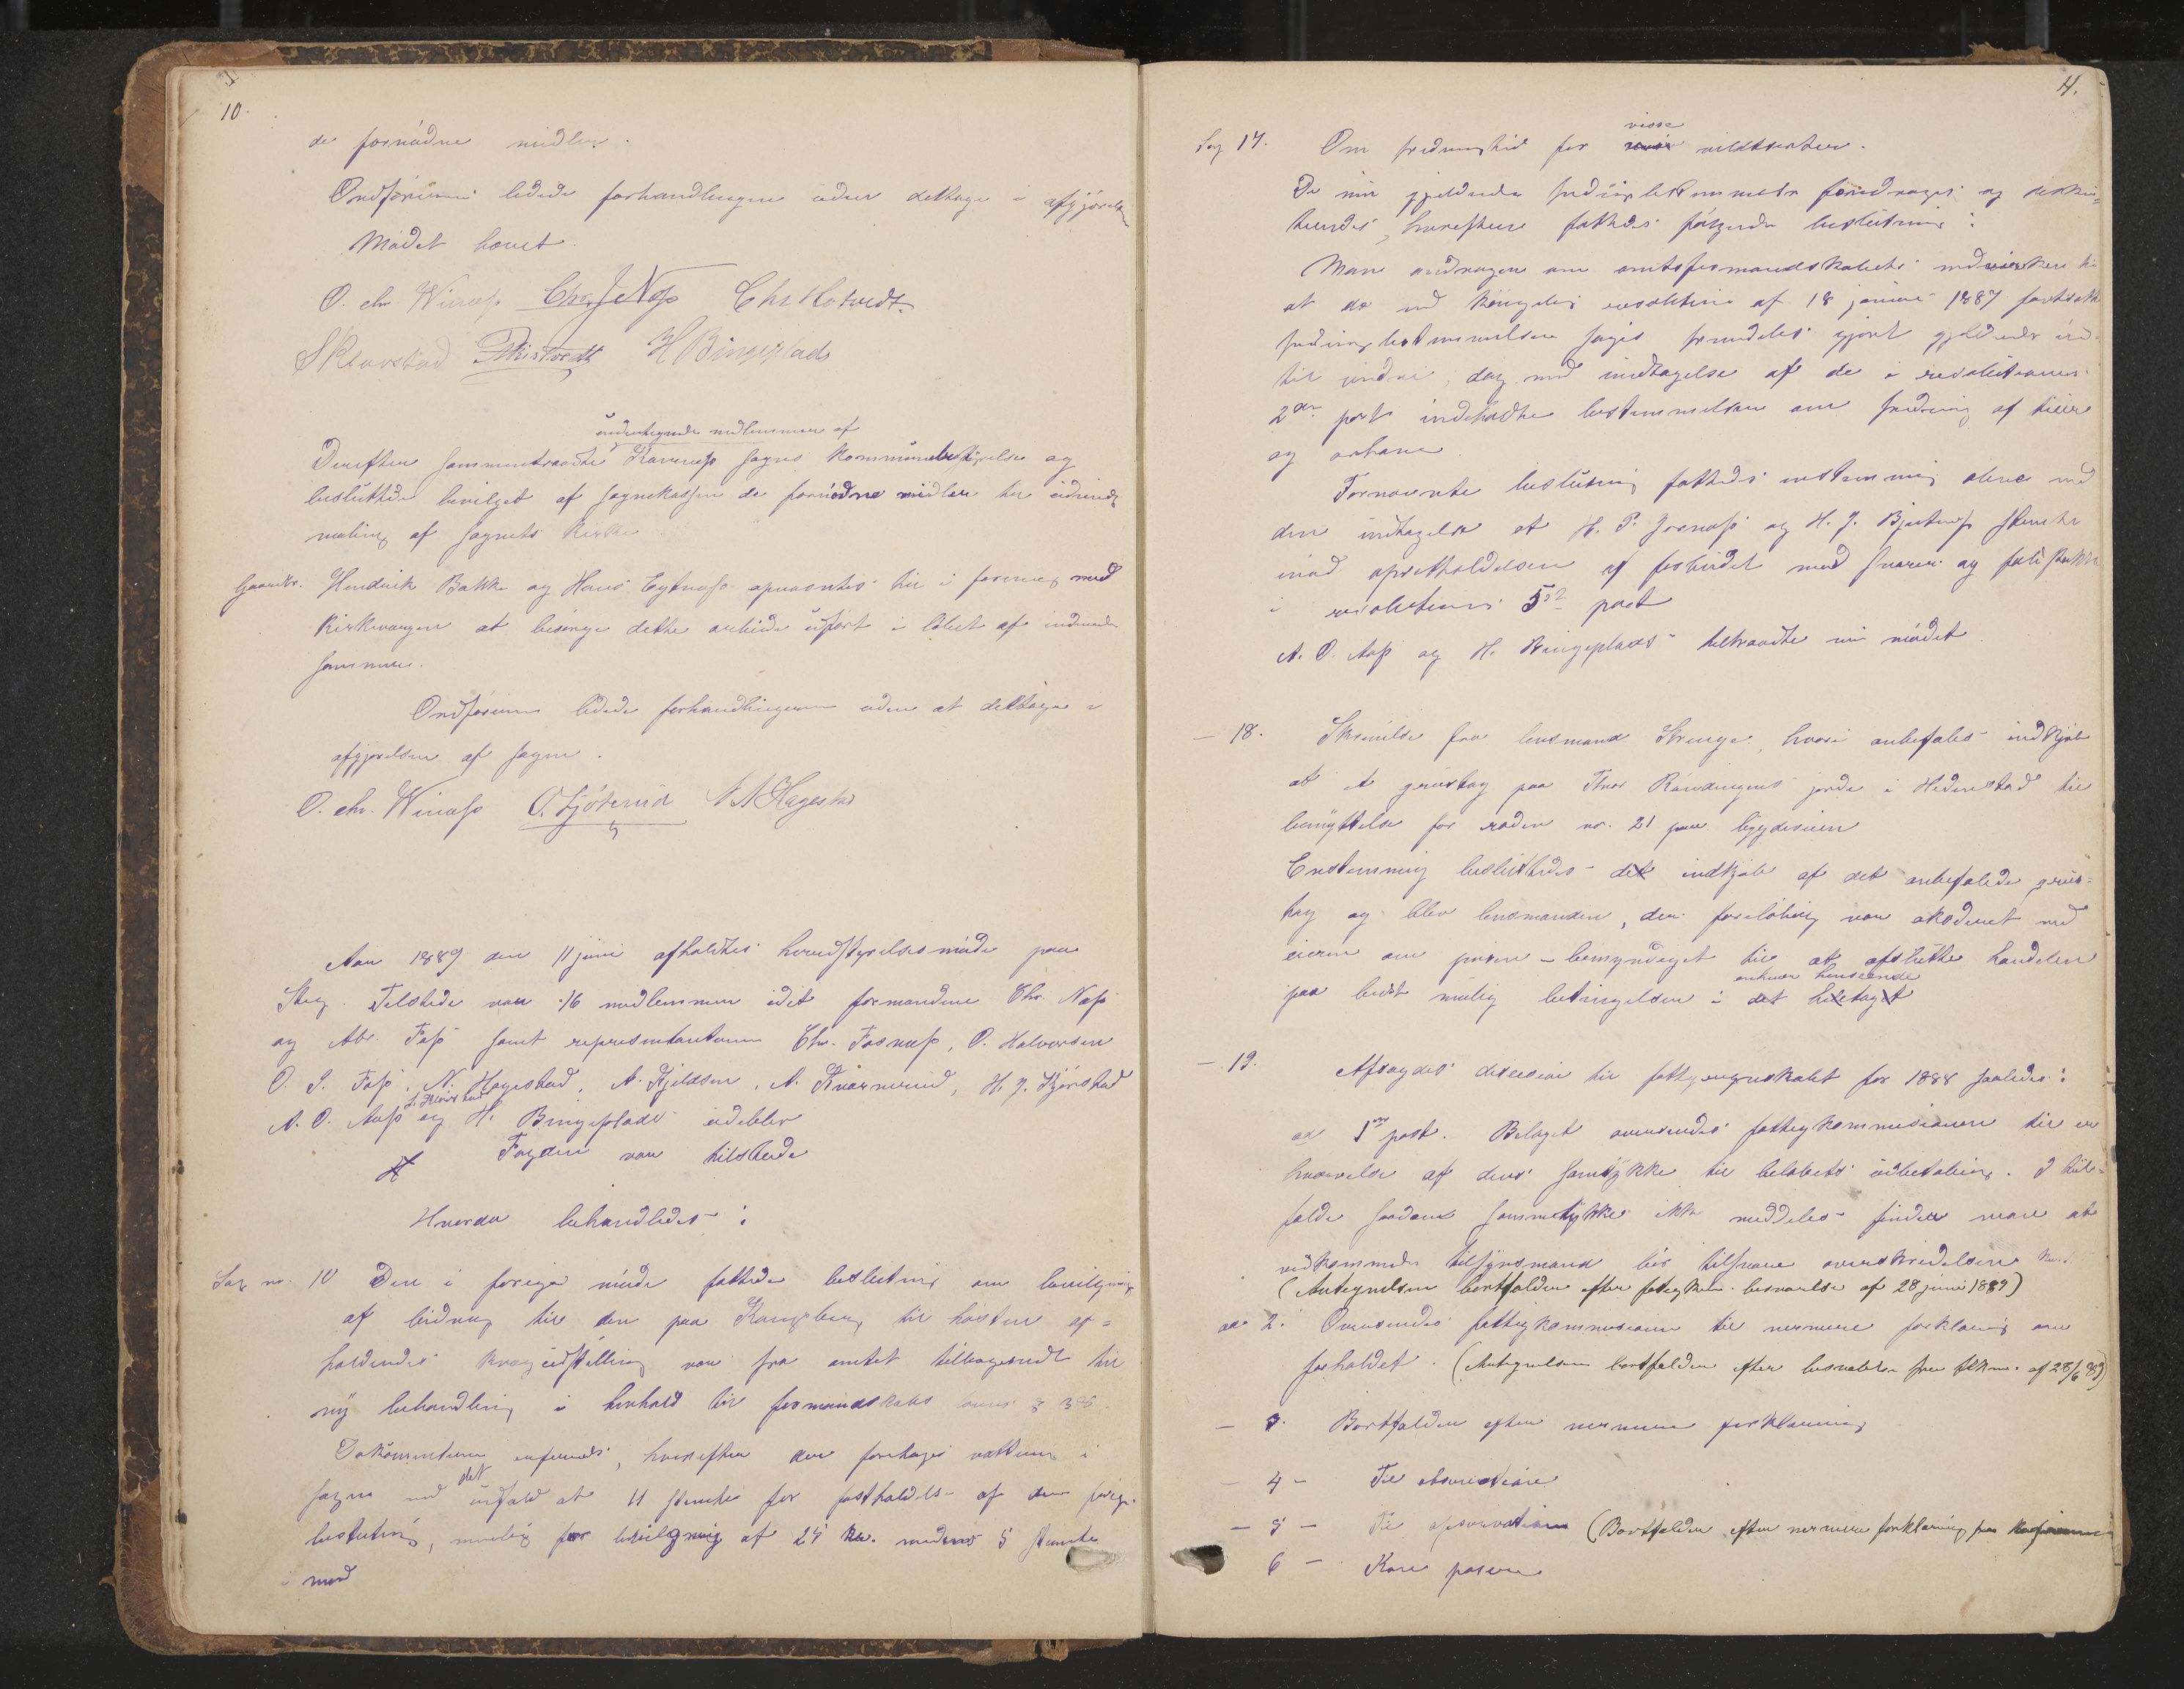 10.
de fornødne midler.
Ordføreren ledede forhandlingen uden deltage i afgjørelsen
Mødet hævet
O. chr. Winæss Chr. J. Næss Chr Hotvedt.
S Klovstad H Bingeplads
undertegnede medlemmer af
Derefter sammentraadte sogns kommunebestyrelse og
besluttede bevilget af sognekassen de fornødne midler til udvendig
maling af sognets kirke.
Gaardbr. Hendrik Bakke og Hans opnævntes til i forening med
kirkeværgen at besørge dette arbeide udført i løbet af indeværende
sommer.
Ordføreren ledede forhandlingerne uden at deltage i
afgjørelsen af sagen.
O. chr. Winæss N N Hagestad
Aar 1889 den 11 juni afholdtes herredsstyrelsesmøde paa
Steg. Tilstede var 16 medlemmer idet formændene Chr. Næss
og Abr. Foss samt repræsentanterne Chr. Fosnæss, O. Halvorsen
O. S. Foss, N. Hagestad, A. Kjeldsen, A. Kværnerud, H. J. Skjørstad
S. Klovstad
A. O. Aass og H. Bingeplads udeblev
Fogden var tilstede
Hvorda behandledes:
Sag no. 10 Den i forrige møde fattede beslutning om bevilgning
af bidrag til den paa Kongsberg til høsten af=
holdendes kvægudstilling var fra amtet tilbagesendt til
ny behandling i henhold til formandskabslovens § 38.
Dokumenterne oplæstes, hvorefter der foretoges votering i
sagen med det udfald at 11 stemte for fastholdelse af den forrige
beslutning, nemlig for bevilgning af 25 kr. medens 5 stemte
imod
11.
Sag 17. Om fredningstid for visse vildtsorter.
De nu gjeldende fredningsbestemmelser foredroges og disku=
teredes, hvorefter fattedes følgende beslutning:
Man andrager om amtsformandskabets medvirken til
at de ved kongelig resolution af 18 januar 1887 fastsatte
fredningsbestemmelser søges fremdeles gjort gjeldende ind=
til videre, dog med undtagelse af de i resolutionens
2den post indeholdte bestemmelser om fredning af tiur
og orhane
Fornævnte beslutning fattedes enstemmig alene med
den undtagelse at H. P. Jornæss og H. J. stemte
imod opretholdelsen af forbudet mod snarer og
i resolutions 5te post
A. O. Aass og H. Bingeplads tiltraadte nu mødet
— 18. Skrivelse fra lensmand Strenge, hvori anbefales indkjøb
af et grustag paa Thor jorde i Hedenstad til
benyttelse for roden no. 21 paa bygdeveien
Enstemmig besluttedes det indkjøb af det anbefalede grus=
tag og blev lensmanden, der foreløbig var akorderet med
eieren om prisen – bemyndiget til at afslutte handelen
enhver henseende
paa bedst mulig betingelser i det heletaget
— 19. Afsagdes decision til fattigregnskabet for 1888 saaledes:
ad 1ste post. Bilaget oversendes fattigkommissionen til er
hvervelse af dens samtykke til beløbets udbetaling. I til=
fælde saadant sammtykke ikke meddeles finder man at
vedkommende tilsynsmand bør tilsvare overskridelsen
(Antegnelsen bortfalder efter fatigkom. besvarelse af 28 juni 1889)
ad 2. Oversendes fattigkommissionen til nærmere forklaring om
forholdet. (Antegnelsen bortfalder efter besvarelse fra ftkm. af 28/6 89)
— 3. Bortfalder efter nærmere forklaring
— 4 – Til observation
— 5 – Til observation (Bortfalder efter nærmere forklaring fra
6 – Kan passere